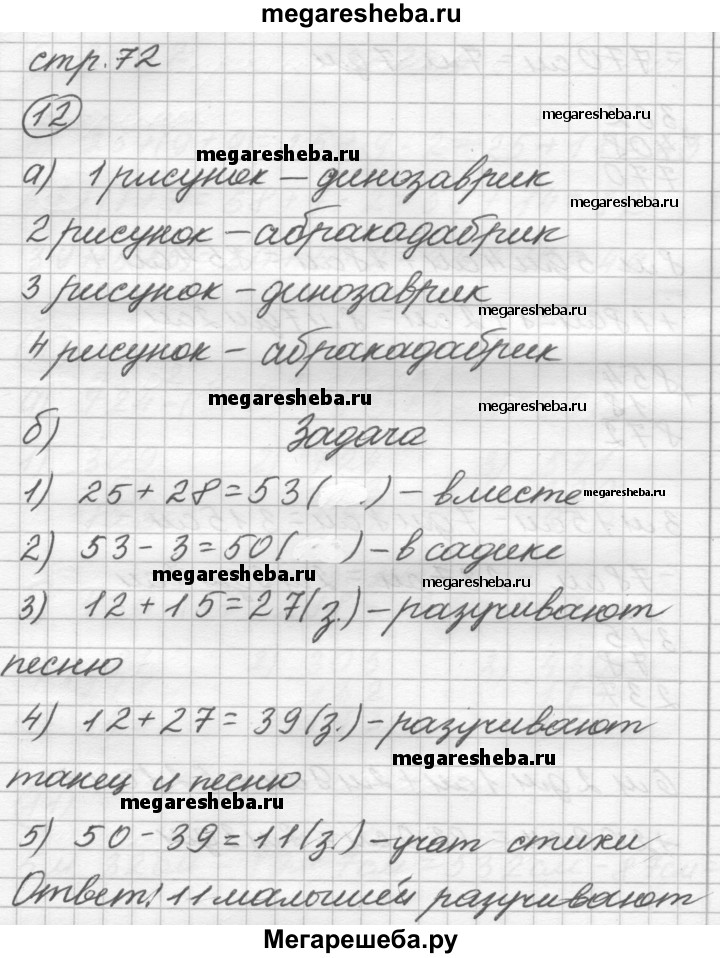 megaresheba.ru
стр. 72
12
megaresheba.ru
megaresheba.ru
а) 1 рисунок – динозаврик
megaresheba.ru
2 рисунок – абракадабрик
3 рисунок – динозаврик
megaresheba.ru
4 рисунок – абракадабрик
megaresheba.ru
megaresheba.ru
б) Задача
1) 25 + 28 = 53 ( .) – вместе
megaresheba.ru
2) 53 – 3 = 50 ( ) – в садике
megaresheba.ru
megaresheba.ru
3) 12 + 15 = 27 (з.) – разучивают
песню
4) 12 + 27 = 39 (з.) – разучивают
megaresheba.ru
танец и песню
megaresheba.ru
5) 50 – 39 = 11 (з.) – учат стихи
Ответ: 11 малышей разучивают
Мегарешеба.ру